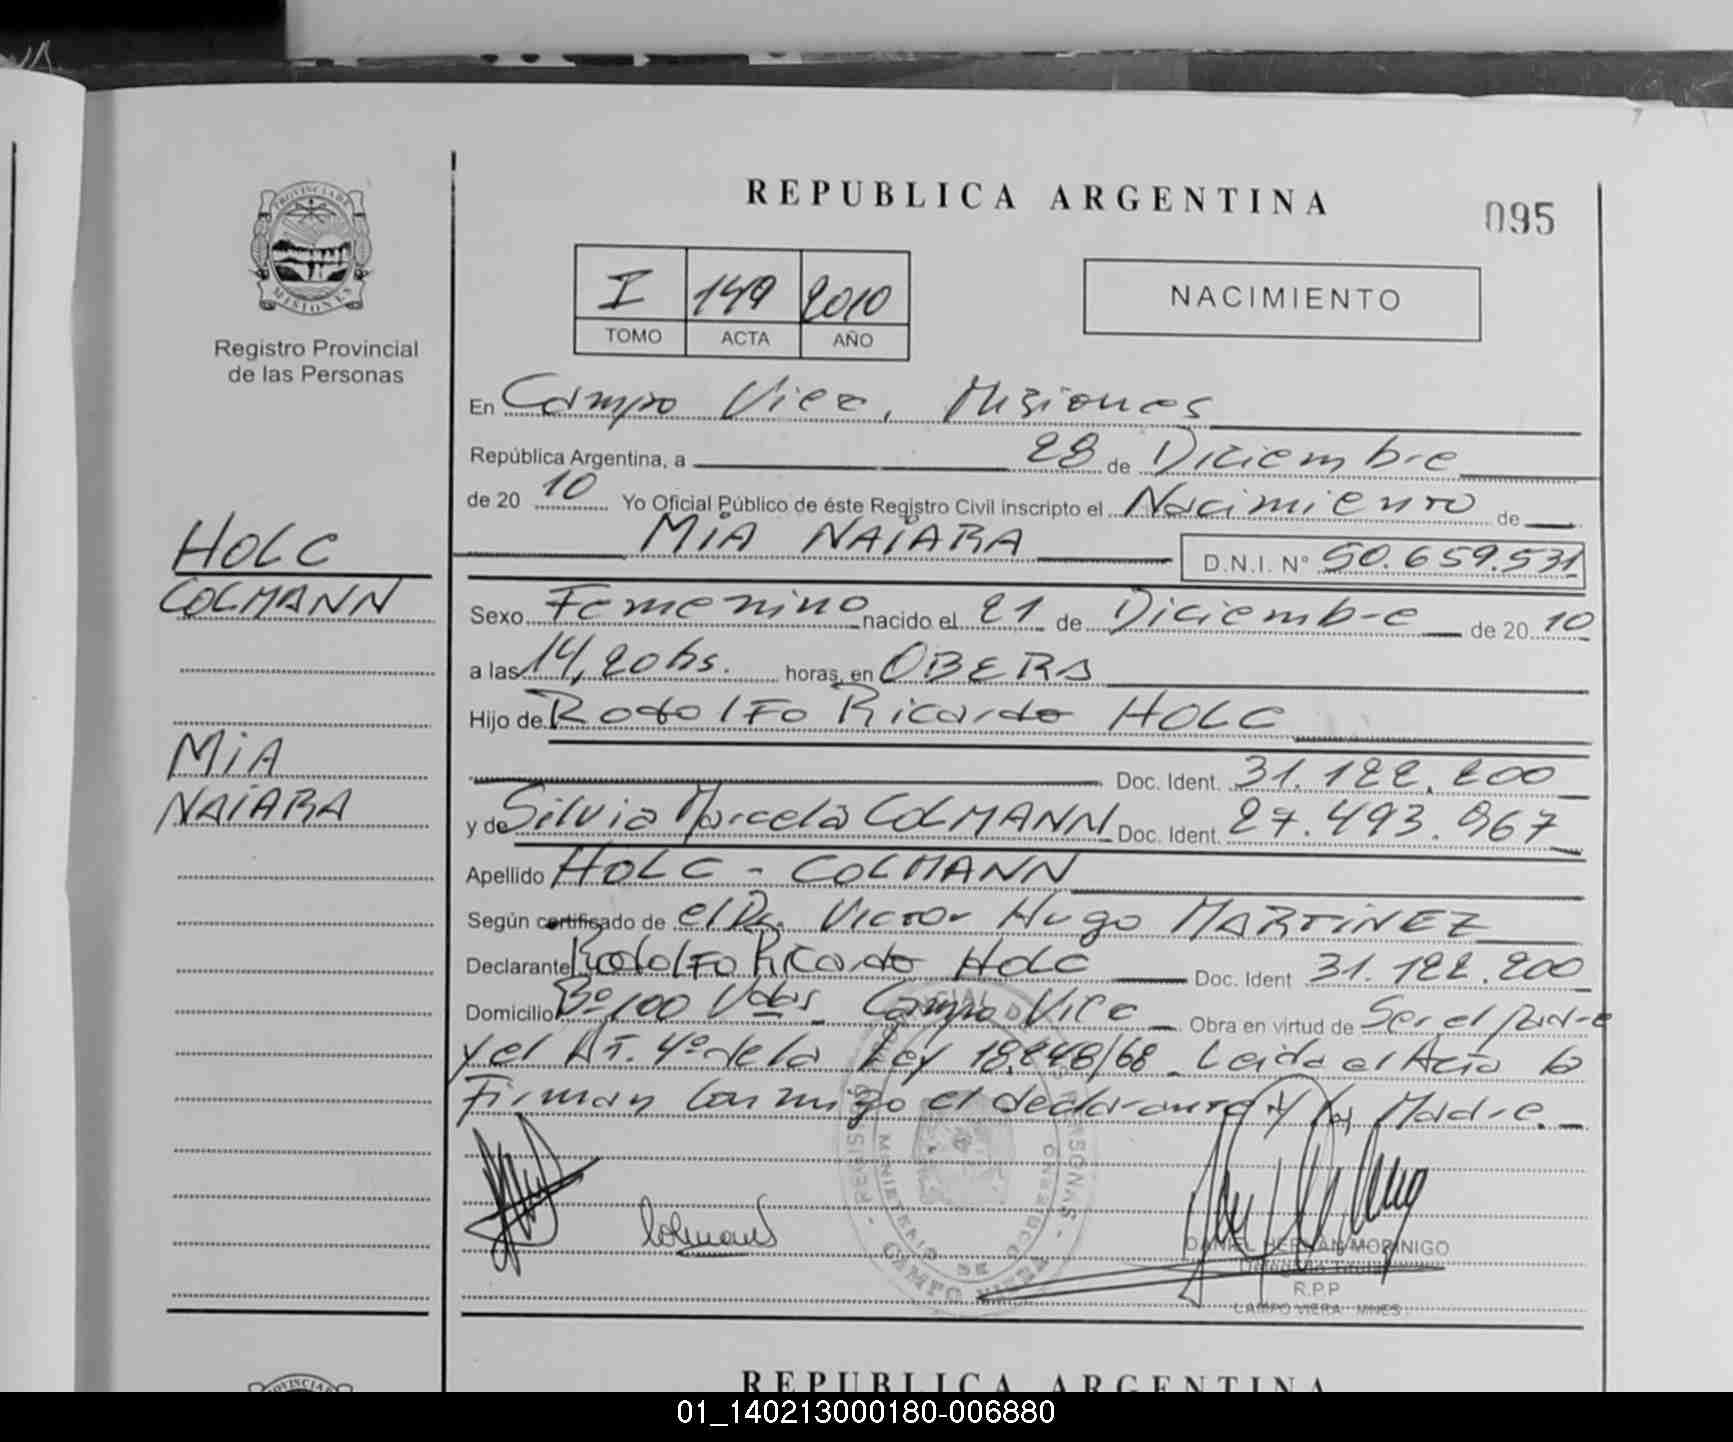 REPUBLICA ARGENTINA
095
PROVINCIA DE MISIONES
Registro Provincial
de las Personas
I 149 2010
TOMO ACTA AÑO
NACIMIENTO
En Campo Viera, Misiones
República Argentina, a 28 de Diciembre
de 20 10 Yo Oficial Público de éste Registro Civil inscripto el Nacimiento de
MiA NAiARA D.N.I. Nº 50.659.531
HOLC
COLMANN
MiA
NAiARA
Sexo Femenino nacido el 21 de Diciembre de 20 10
a las 14,20 hs. horas, en OBERA
Hijo de Rodolfo Ricardo HOLC
Doc. Ident. 31.122.200
y de Silvia Marcela COLMANN Doc. Ident. 27.493.967
Apellido HOLC - COLMANN
Según certificado de el Dr. Victor Hugo MARTiNEZ
Declarante Rodolfo Ricardo HOLC Doc. Ident 31.122.200
Domicilio Bº 100 Vdas Campo Viera Obra en virtud de Ser el Padre
y el Art. 4º de la Ley 18.248/68 - Leida el Acta la
Firman conmigo el declarante y la Madre.
Colmann
DANIEL HERNAN MORINIGO
Delegado Titular
R.P.P
CAMPO VIERA MNES.
REPUBLICA ARGENTINA
01_140213000180-006880